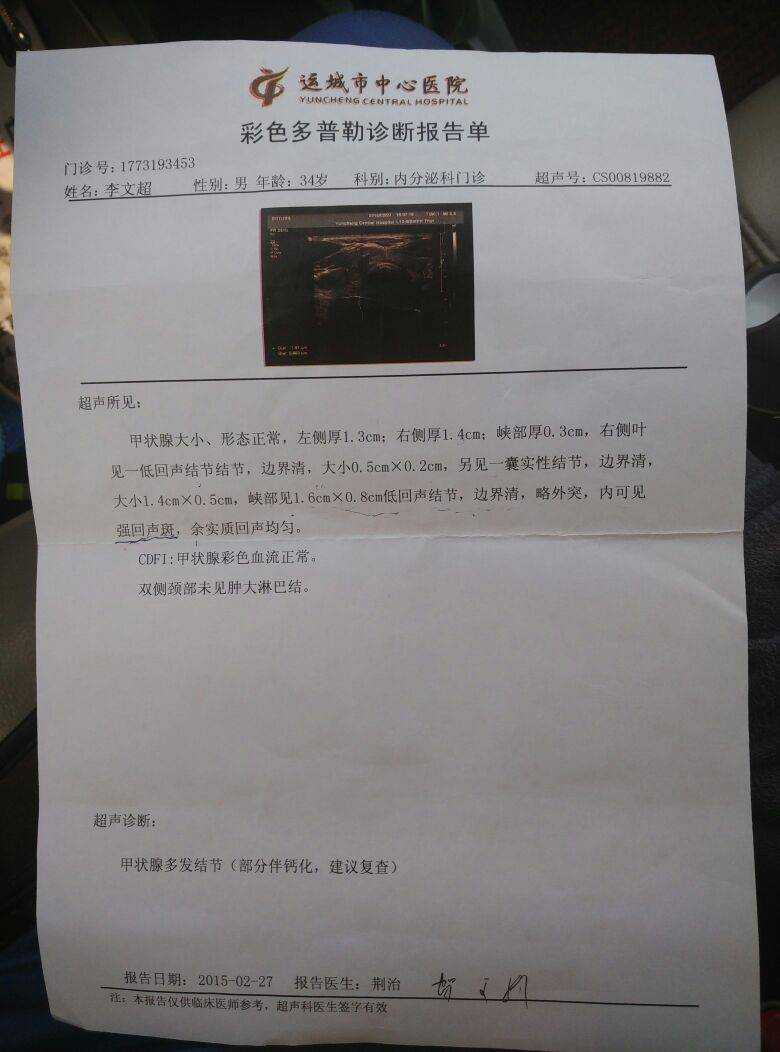 运城市中心医院
YUNCHENG CENTRAL HOSPITAL
彩色多普勒诊断报告单
门诊号：1773193453
姓名：李文超 性别：男 年龄：34岁 科别：内分泌科门诊 超声号：CS00819882
Yuncheng Central Hospital
超声所见：
甲状腺大小、形态正常，左侧厚1.3cm；右侧厚1.4cm；峡部厚0.3cm，右侧叶
见一低回声结节结节，边界清，大小0.5cm×0.2cm，另见一囊实性结节，边界清，
大小1.4cm×0.5cm，峡部见1.6cm×0.8cm低回声结节，边界清，略外突，内可见
强回声斑，余实质回声均匀。
CDFI:甲状腺彩色血流正常。
双侧颈部未见肿大淋巴结。
超声诊断：
甲状腺多发结节（部分伴钙化，建议复查）
报告日期：2015-02-27 报告医生：荆治
注：本报告仅供临床医师参考，超声科医生签字有效